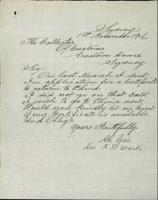 Sydney
1st November 1916
The Collector
Of Customs
Customs House
Sydney
Sir
On last March I sent
an application for a Certificate
to return to China
I did not go on that date
I wish to go to China now
Would you kindly let me know
if my Certificate is available
and Oblige
Yours Faithfully
Ah